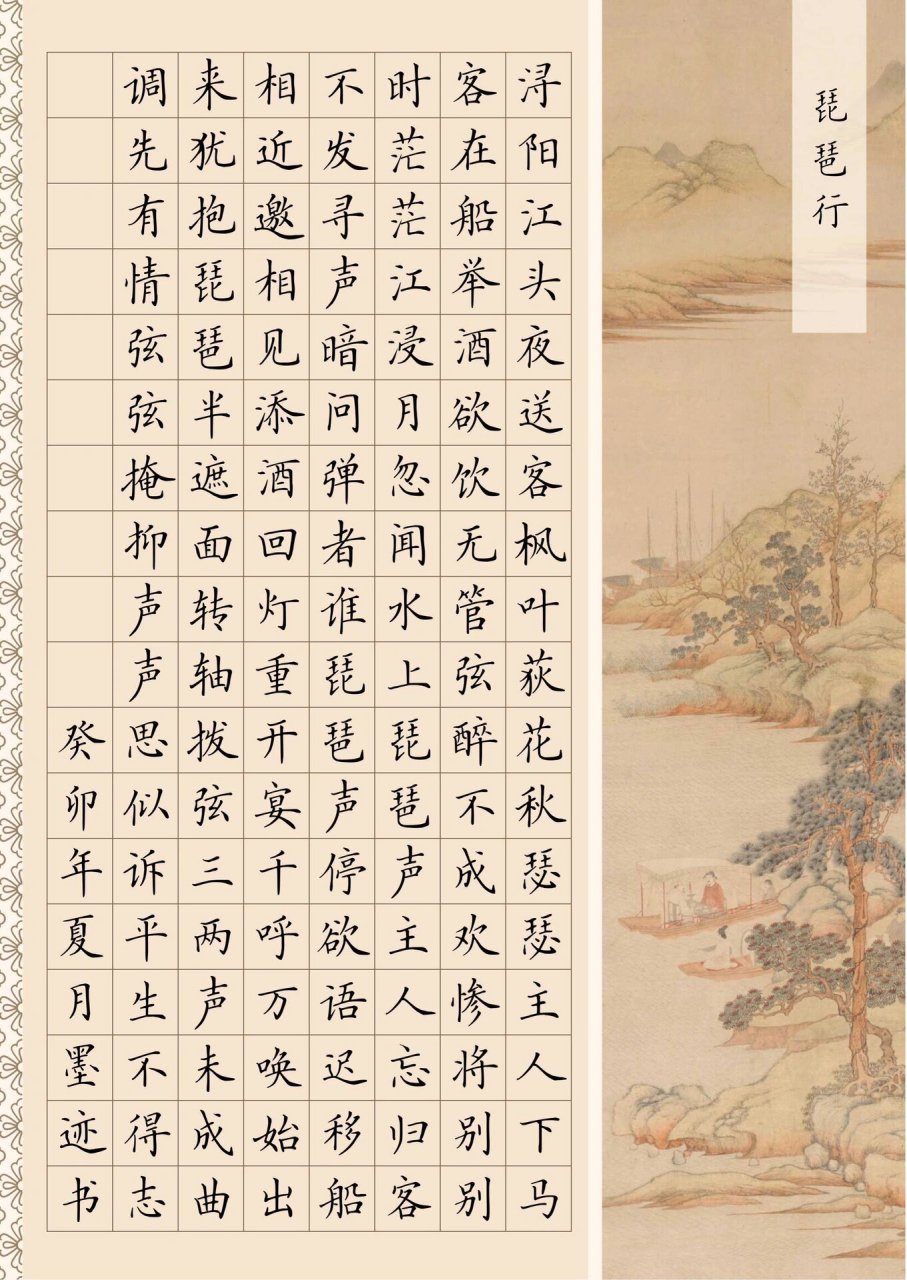 琵琶行
浔阳江头夜送客枫叶荻花秋瑟瑟主人下马
客在船举酒欲饮无管弦醉不成欢惨将别别
时茫茫江浸月忽闻水上琵琶声主人忘归客
不发寻声暗问弹者谁琵琶声停欲语迟移船
相近邀相见添酒回灯重开宴千呼万唤始出
来犹抱琵琶半遮面转轴拨弦三两声未成曲
调先有情弦弦掩抑声声思似诉平生不得志
癸卯年夏月墨迹书